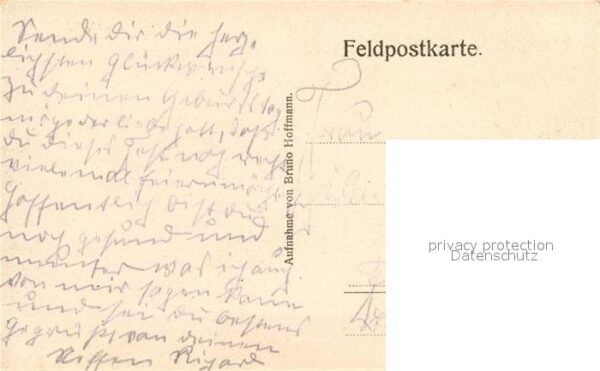 Sende dir die herz-
lichsten Glückwünsche
zu deinen Geburtstag
möge der liebe Gott, daß
du dieses Fest noch recht
vielemal feiern möchte
Hoffentlich bist du
noch gesund und
munter was ich auch
von mir sagen kann
und sei du bestens
gegrüßt von deinen
Neffen Richard
Feldpostkarte.
Aufnahme von Bruno Hoffmann.
Frau
privacy protection
Datenschutz